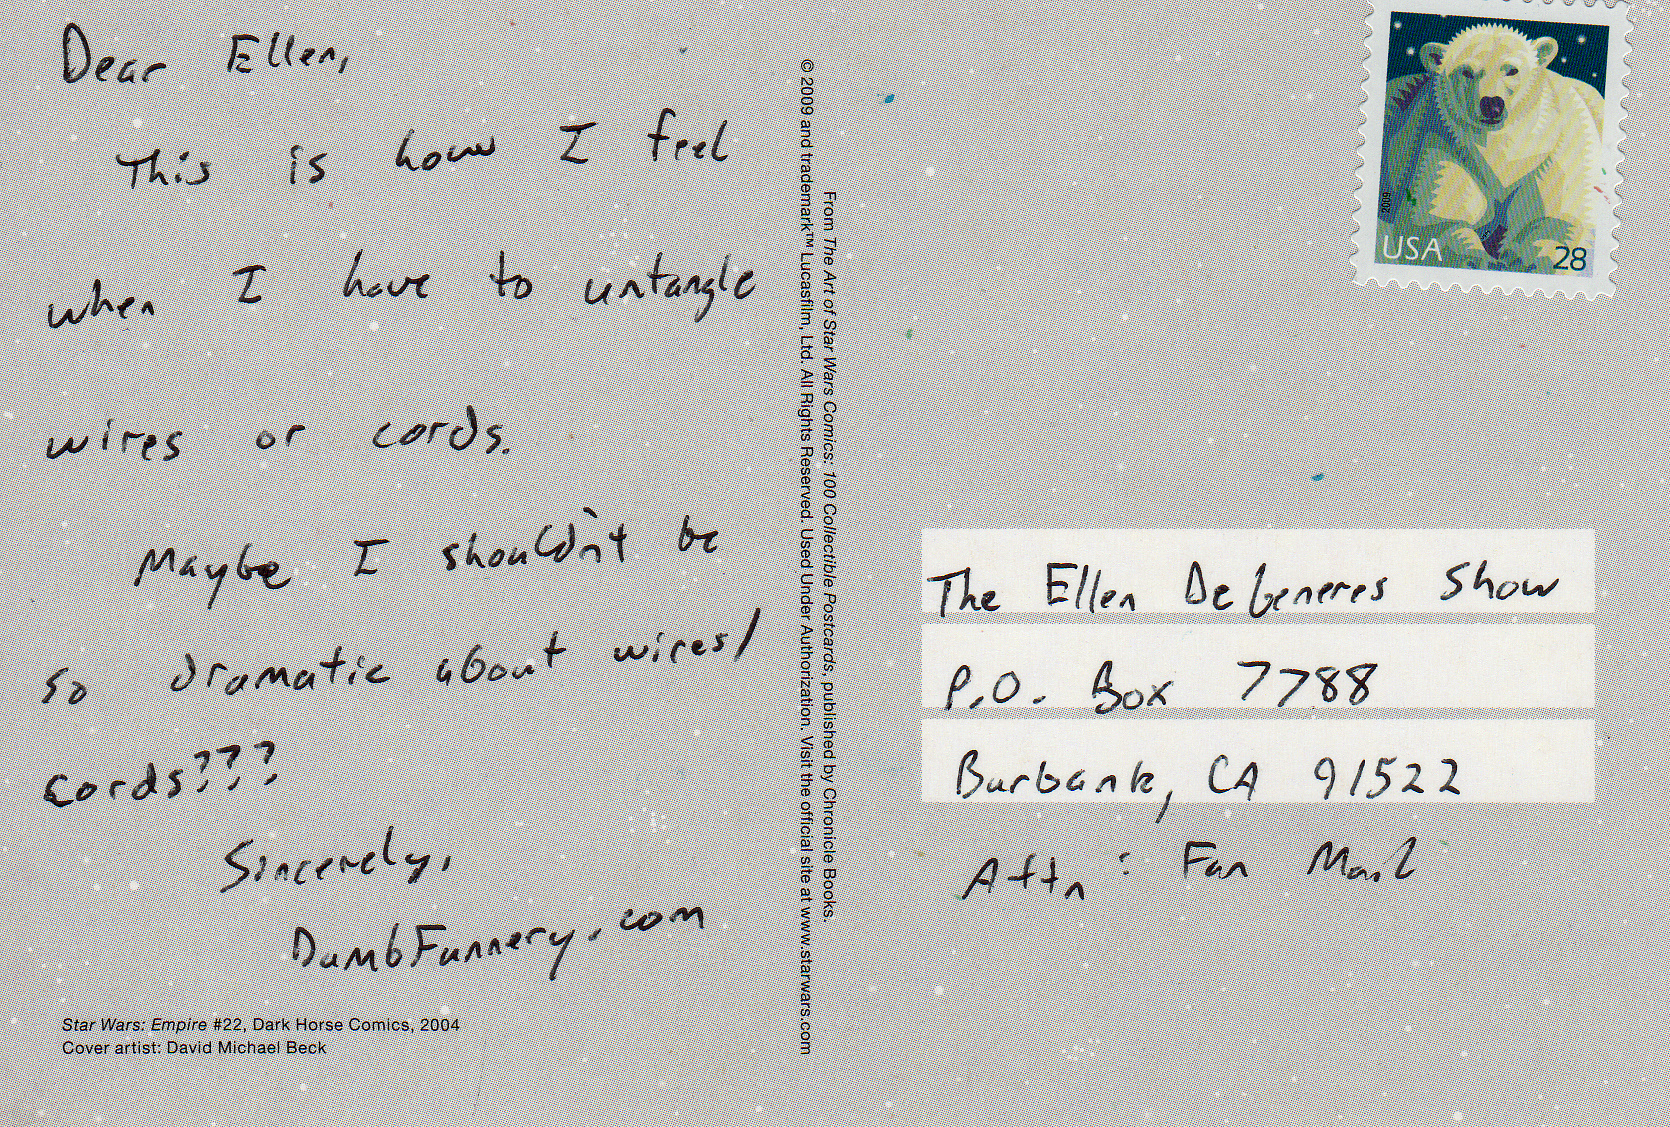 Dear Ellen,
This is how I feel
when I have to untangle
wires or cords.
Maybe I shouldn't be
so dramatic about wires/
cords???
Sincerely,
DumbFunnery.com
Star Wars: Empire #22, Dark Horse Comics, 2004
Cover artist: David Michael Beck
From The Art of Star Wars Comics: 100 Collectible Postcards, published by Chronicle Books.
© 2009 and trademark™ Lucasfilm, Ltd. All Rights Reserved. Used Under Authorization. Visit the official site at www.starwars.com
2009
USA 28
The Ellen DeGeneres Show
P.O. Box 7788
Burbank, CA 91522
Attn: Fan Mail